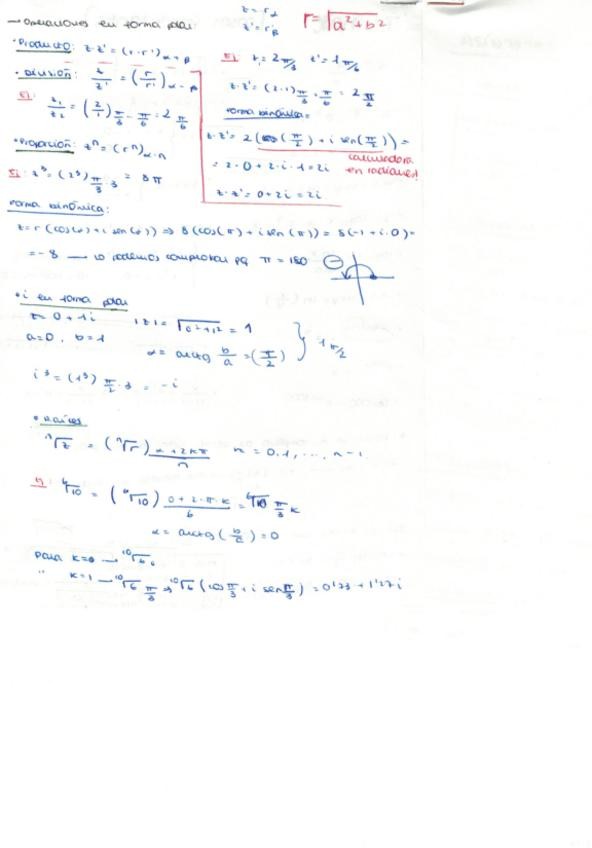 → Operaciones en forma polar: z = r_α
z' = r'_β r = √(a² + b²)
• Producto: z · z' = (r · r')_{α + β}
• División: z/z' = (r/r')_{α - β}
Ej: z₁/z₂ = (2/1)_{π/3 - π/6} = 2_{π/6}
• Propoción: zⁿ = (rⁿ)_{α · n}
Ej: z³ = (2³)_{π/3 · 3} = 8π
Ej: z₁ = 2_{π/3} z' = 1_{π/6}
z · z' = (2 · 1)_{π/3 + π/6} = 2_{π/2}
Forma binómica:
z · z' = 2(cos(π/2) + i sen(π/2)) =
= 2 · 0 + 2 · i · 1 = 2i
calculadora en radianes!
z · z' = 0 + 2i = 2i
Forma binómica:
z = r(cos(α) + i sen(α)) ⇒ 8(cos(π) + i sen(π)) = 8(-1 + i · 0) =
= -8 → lo podemos comprobar pq π = 180 ⊖
• i en forma polar
z = 0 + 1i |z| = √(0² + 1²) = 1
a = 0, b = 1 α = arctg b/a = (π/2) } 1_{π/2}
i³ = (1³)_{π/2 · 3} = -i
• Raíces
ⁿ√z = (ⁿ√r)_{(α + 2kπ)/n} n = 0, 1, ..., n - 1
Ej: ⁶√10 = (⁶√10)_{(0 + 2 · π · k)/6} = ⁶√10_{π/3 k}
α = arctg(b/a) = 0
Para k = 0 → ¹⁰√6₀
" k = 1 → ¹⁰√6_{π/3} ⇒ ¹⁰√6 (cos π/3 + i sen π/3) = 0'73 + 1'27i